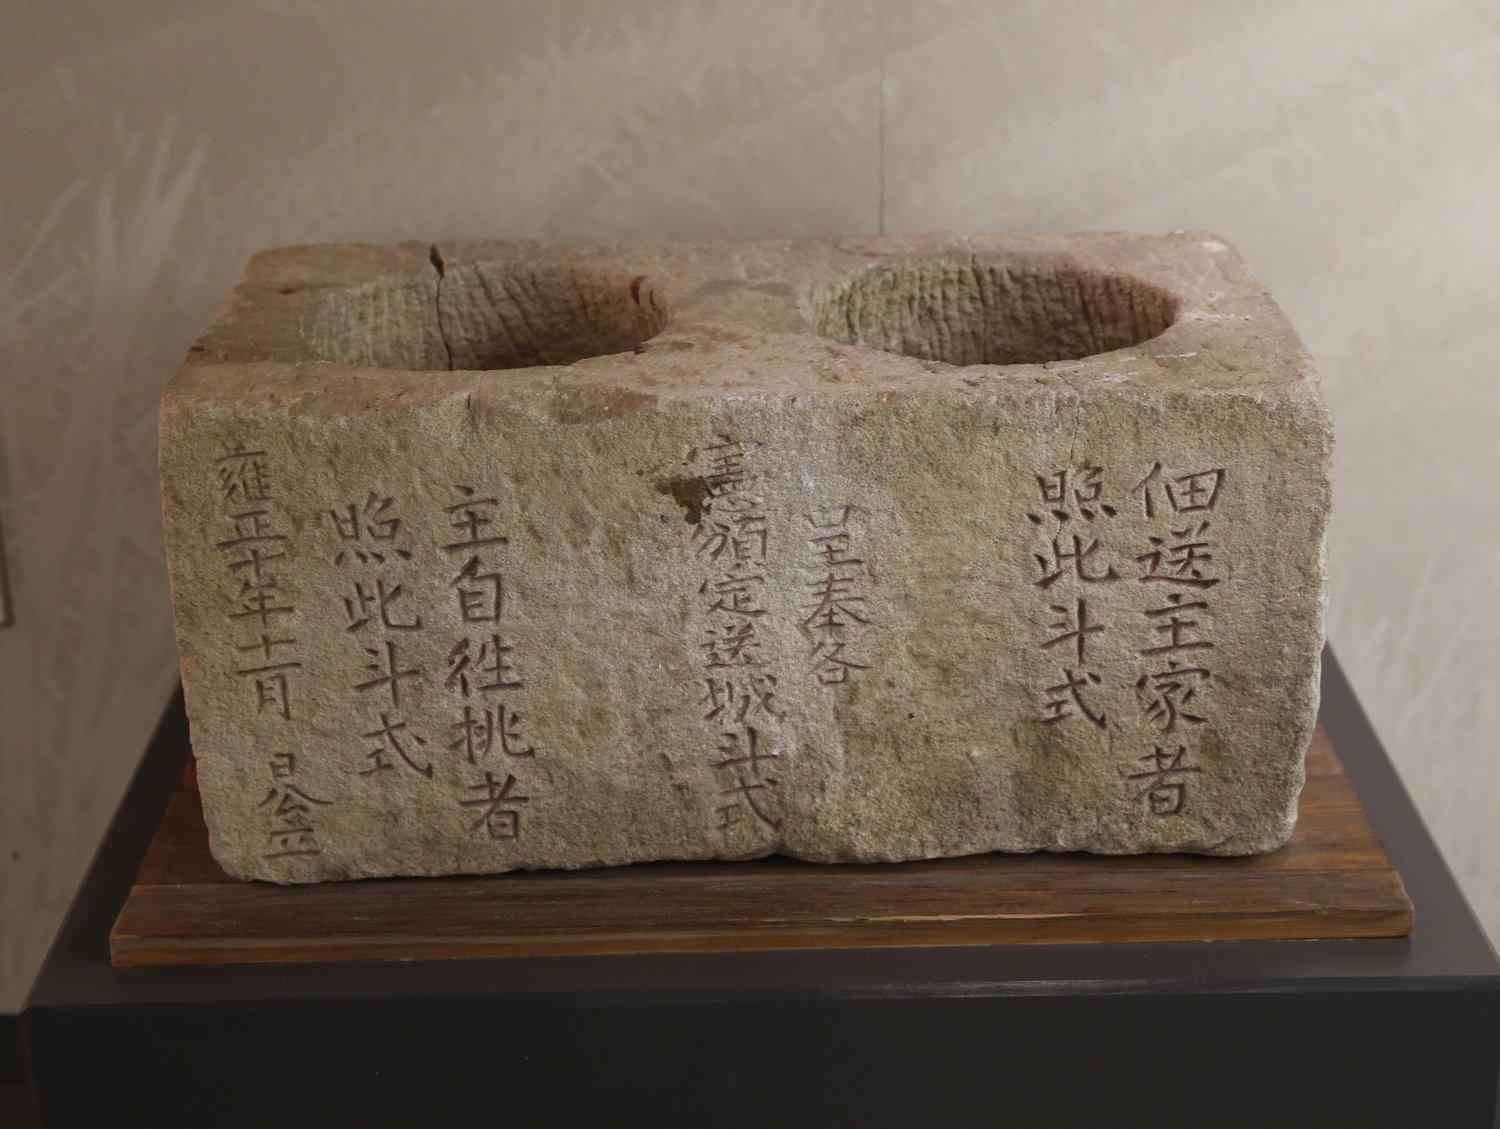 佃送主家者
照此斗式
呈奉各
憲頒定送城斗式
主自徃挑者
照此斗式
雍正十年十一月 日公立